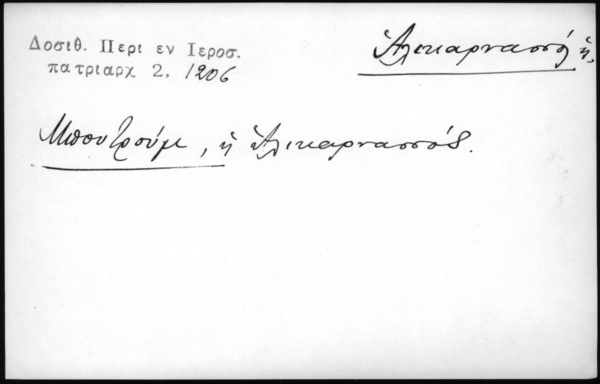 Δοσιθ. Περι εν Ιεροσ.
πατριαρχ 2, 1206
Ἁλικαρνασσός ἡ,
Μπουτρούμι, ἡ Ἁλικαρνασσός.